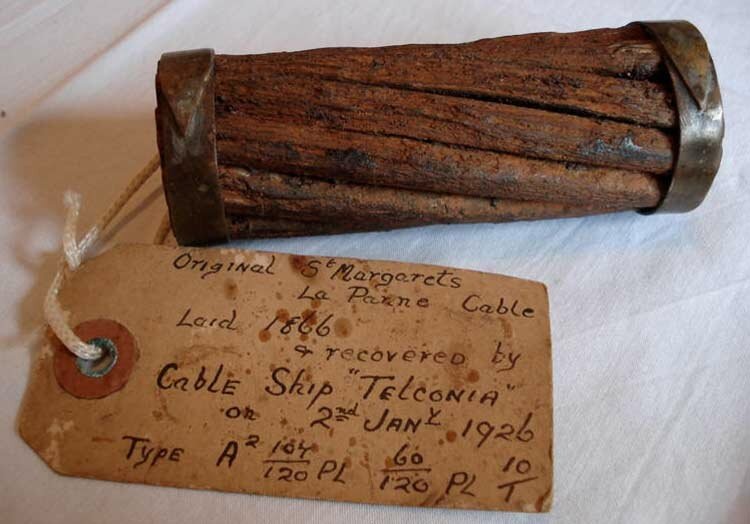 Original St Margarets
La Panne Cable
Laid 1866
& recovered by
Cable Ship "Telconia"
on 2nd Jany 1926
Type A2 104/120 PL 60/120 PL 10/T